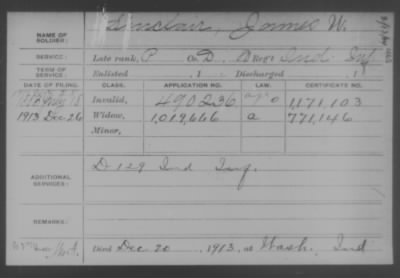 NAME OF SOLDIER: Sinclair, James W.
SERVICE: Late rank, P Co. D, Reg't Ind Inf.
TERM OF SERVICE: Enlisted , 1 Discharged , 1
DATE OF FILING. CLASS. APPLICATION NO. LAW. CERTIFICATE NO.
Invalid, 490236 1,171,103
1913 Dec 26 Widow, 1,019,666 a 771,146
Minor,
ADDITIONAL SERVICES: D 129 Ind Inf.
REMARKS:
Died Dec 20 1913, at Wash. Ind